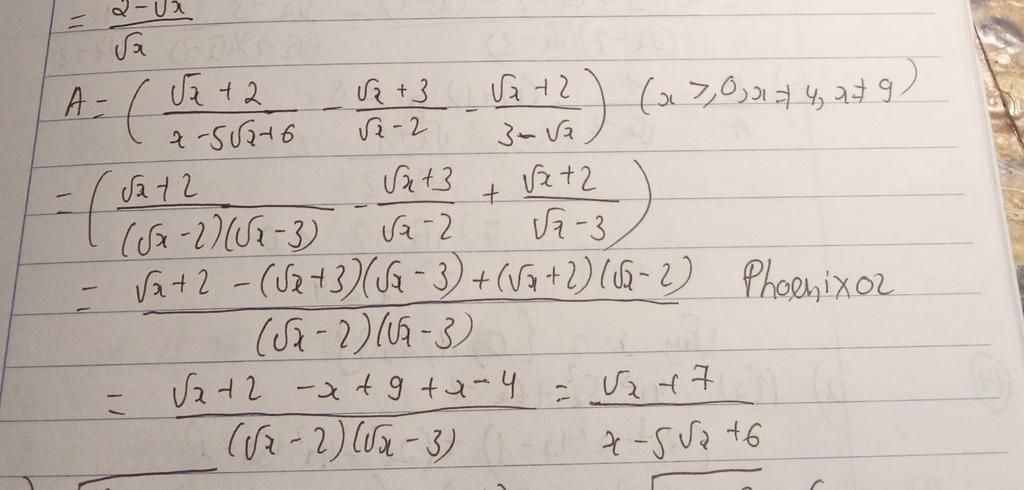 = (2-√x)/√x
A = ( (√x+2)/(x-5√x+6) - (√x+3)/(√x-2) - (√x+2)/(3-√x) ) (x ≥ 0, x ≠ 4, x ≠ 9)
= ( (√x+2)/((√x-2)(√x-3)) - (√x+3)/(√x-2) + (√x+2)/(√x-3) )
= (√x+2 -(√x+3)(√x-3)+(√x+2)(√x-2))/((√x-2)(√x-3)) Phoenix02
= (√x+2 -x+9+x-4)/((√x-2)(√x-3)) = (√x+7)/(x-5√x+6)